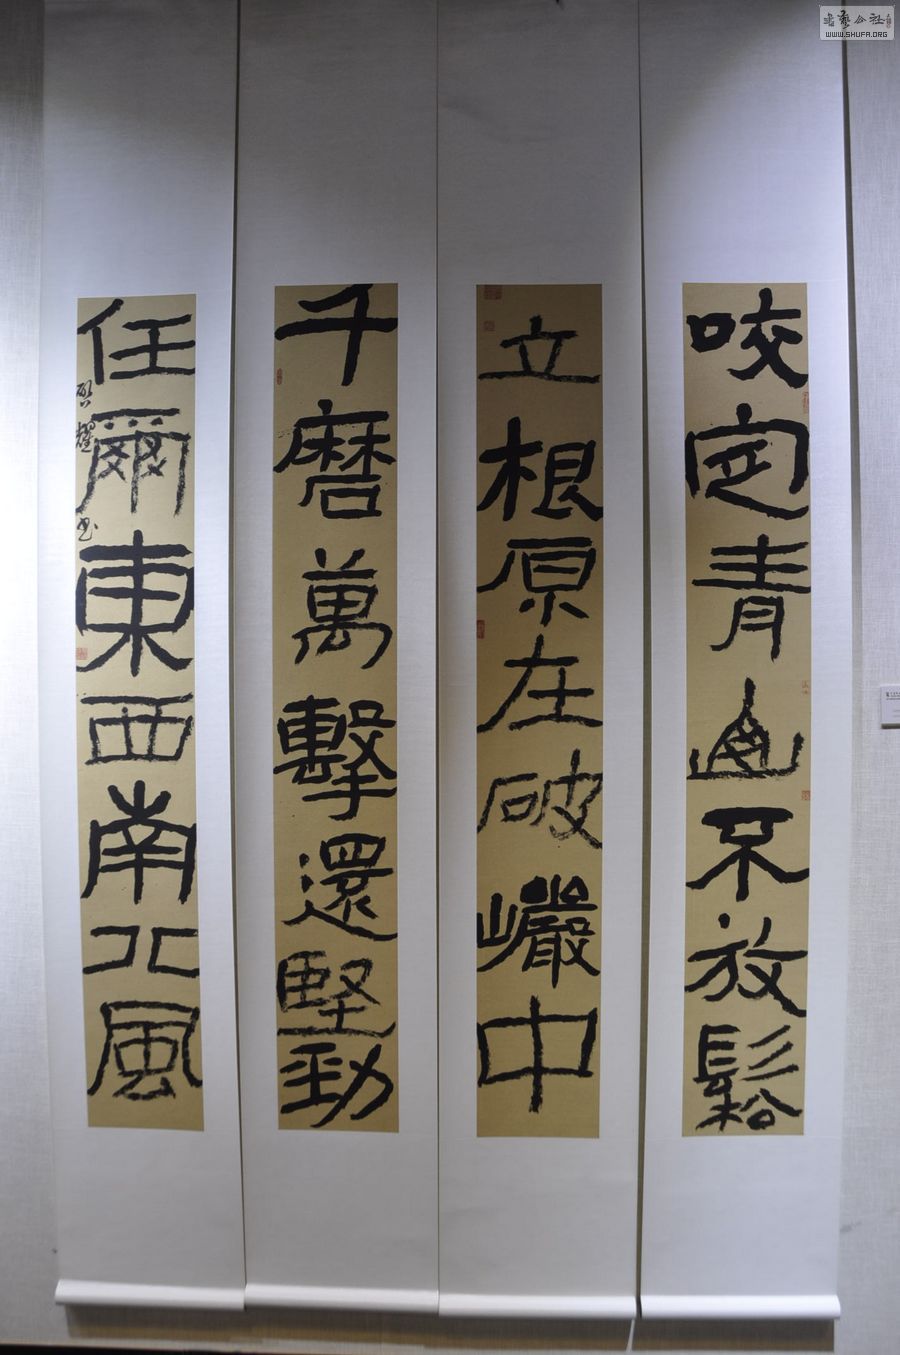 咬定青山不放鬆
立根原在破巖中
千磨萬擊還堅勁
任爾東西南北風
WWW.SHUFA.ORG